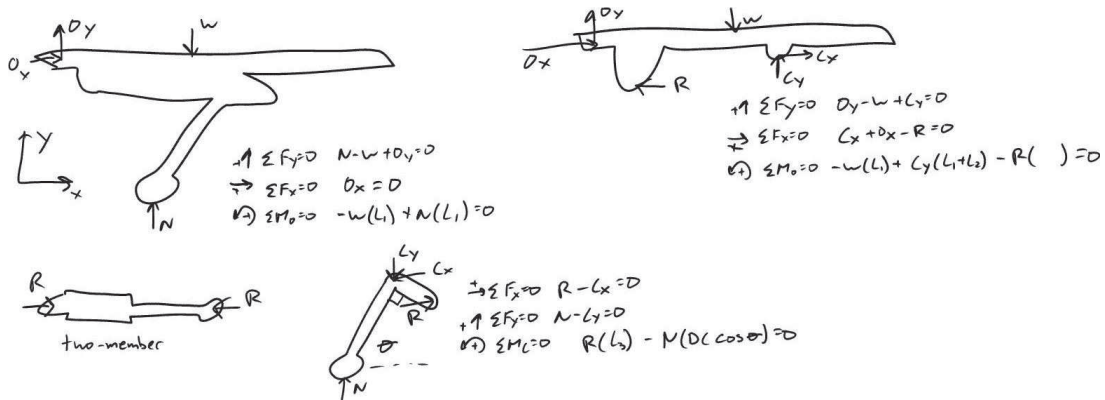 Oy
W
Ox
y
x
N
+↑ ΣFy=0 N-W+Oy=0
→+ ΣFx=0 Ox=0
↺+) ΣMo=0 -W(L₁)+N(L₁)=0
Oy
W
Ox
R
Cx
Cy
+↑ ΣFy=0 Oy-W+Cy=0
→+ ΣFx=0 Cx+Ox-R=0
↺+) ΣMo=0 -W(L₁)+Cy(L₁+L₂)-R( )=0
R
R
two-member
Cy
Cx
R
θ
N
+→ ΣFx=0 R-Cx=0
+↑ ΣFy=0 N-Cy=0
↺+) ΣMc=0 R(L₃)-N(DC cosθ)=0